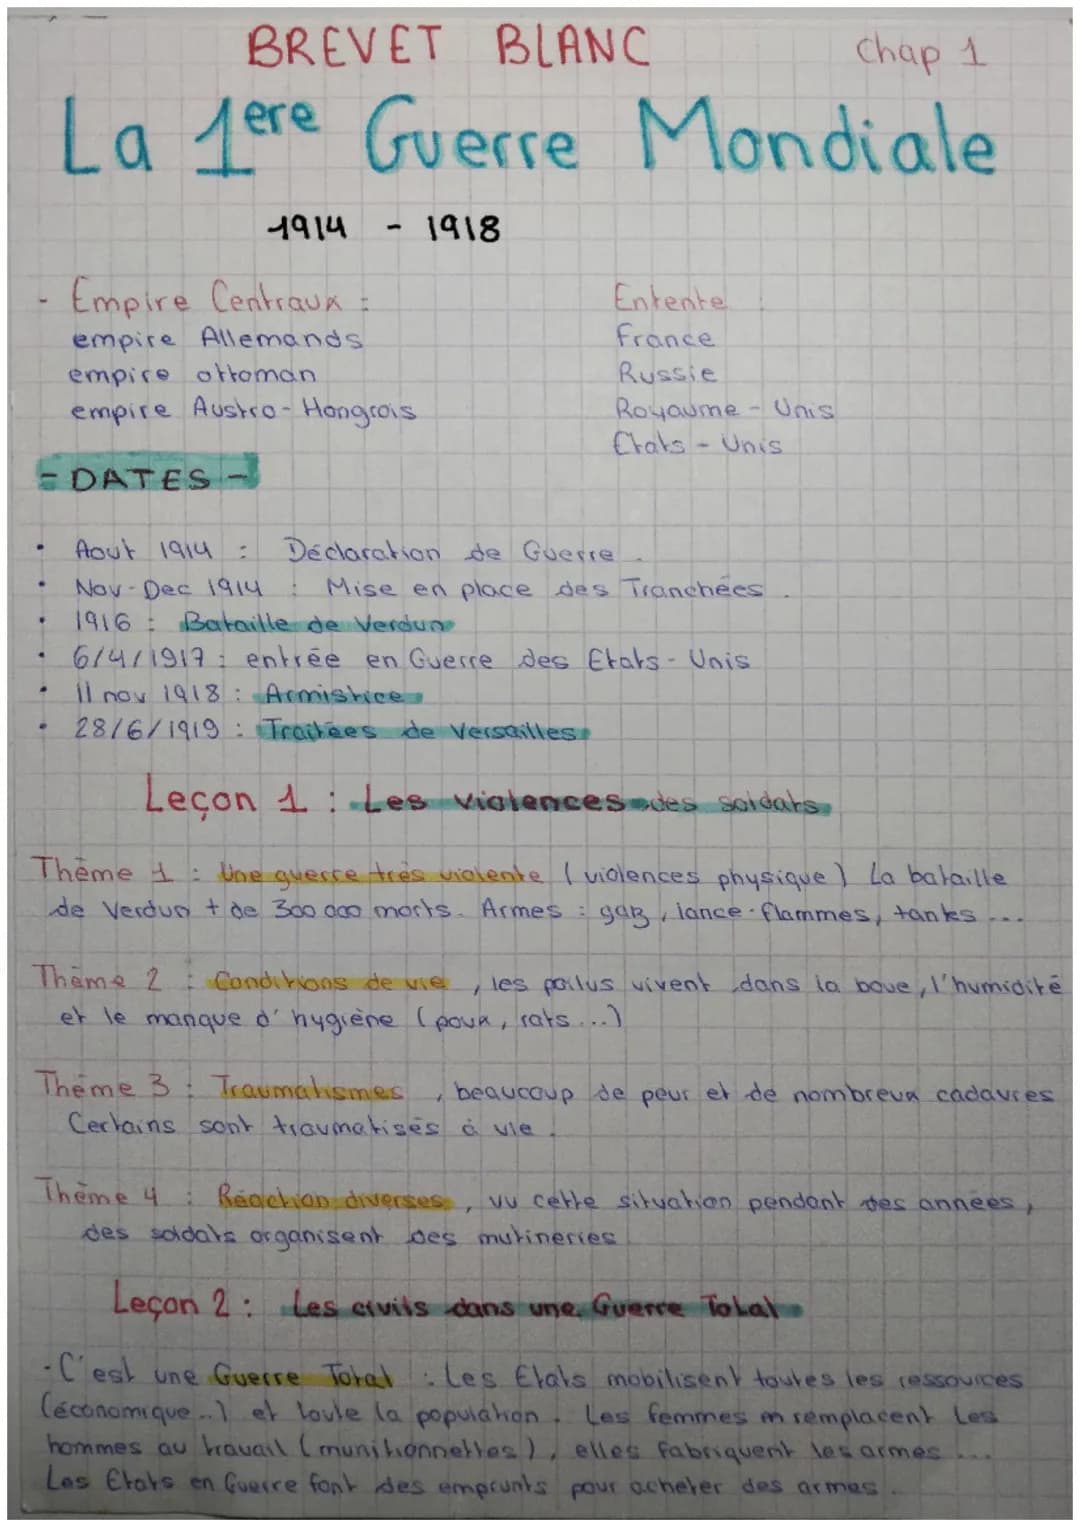 BREVET BLANC Chap 1
La 1ere Guerre Mondiale
1914 - 1918
- Empire Centraux :
empire Allemands
empire ottoman
empire Austro-Hongrois
Entente :
France
Russie
Royaume-Unis
Etats-Unis
- DATES -
• Aout 1914 : Déclaration de Guerre.
• Nov-Dec 1914 : Mise en place des Tranchées.
• 1916 : Bataille de Verdun
• 6/4/1917 : entrée en Guerre des Etats-Unis
• 11 nov 1918 : Armistice
• 28/6/1919 : Traitées de Versailles
Leçon 1 : Les violences des soldats
Thème 1 : Une guerre très violente (violences physique) La bataille
de Verdun + de 300 000 morts. Armes : gaz, lance-flammes, tanks ...
Thème 2 : Conditions de vie, les poilus vivent dans la boue, l'humidité
et le manque d'hygiène (poux, rats...)
Thème 3 : Traumatismes, beaucoup de peur et de nombreux cadavres
Certains sont traumatisés à vie.
Thème 4 : Réaction diverses, vu cette situation pendant des années,
des soldats organisent des mutineries
Leçon 2 : Les civils dans une Guerre Total
- C'est une Guerre Total : Les Etats mobilisent toutes les ressources
(économique..) et toute la population. Les femmes m remplacent les
hommes au travail (munitionnettes), elles fabriquent les armes ...
Les Etats en Guerre font des emprunts pour acheter des armes.